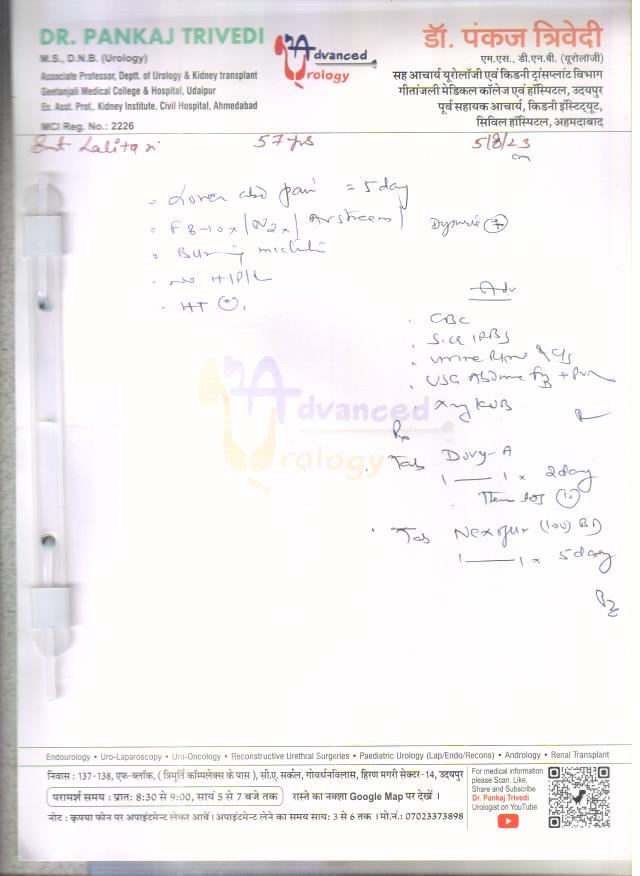 DR. PANKAJ TRIVEDI
M.S., D.N.B. (Urology)
Associate Professor, Deptt. of Urology & Kidney transplant
Geetanjali Medical College & Hospital, Udaipur
Ex. Asst. Prof., Kidney Institute, Civil Hospital, Ahmedabad
MCI Reg. No.: 2226
Advanced
Urology
डॉ. पंकज त्रिवेदी
एम.एस., डी.एन.बी. (यूरोलॉजी)
सह आचार्य यूरोलॉजी एवं किडनी ट्रांसप्लांट विभाग
गीतांजली मेडिकल कॉलेज एवं हॉस्पिटल, उदयपुर
पूर्व सहायक आचार्य, किडनी इंस्टिट्यूट,
सिविल हॉस्पिटल, अहमदाबाद
Smt Lalita 57 yrs 5/8/23
Lower abd pain = 5 day
F 8-10x / N2x / Dysuria +
Burning
no H/P/L
HT +
Adv
CBC
S.Cr / RBS
Urine R/M & C/S
USG + PVR
Xray KUB
Advanced
Urology
Rx
Tab Dovy-A
1 — 1 x 2 day
Then SOS
Tab (100) BD
1 — 1 x 5 day
Endourology • Uro-Laparoscopy • Uro-Oncology • Reconstructive Urethral Surgeries • Paediatric Urology (Lap/Endo/Recons) • Andrology • Renal Transplant
निवास : 137-138, एफ-ब्लॉक, ( त्रिमुर्ति कॉम्पलेक्स के पास ), सी.ए. सर्कल, गोवर्धनविलास, हिरण मगरी सेक्टर-14, उदयपुर
परामर्श समय : प्रातः 8:30 से 9:00, सायं 5 से 7 बजे तक रास्ते का नक्शा Google Map पर देखें ।
नोट : कृपया फोन पर अपाइंटमेन्ट लेकर आवें । अपाइंटमेन्ट लेने का समय सायः 3 से 6 तक । मो.नं.: 07023373898
For medical information
please Scan, Like,
Share and Subscribe
Dr. Pankaj Trivedi
Urologist on YouTube